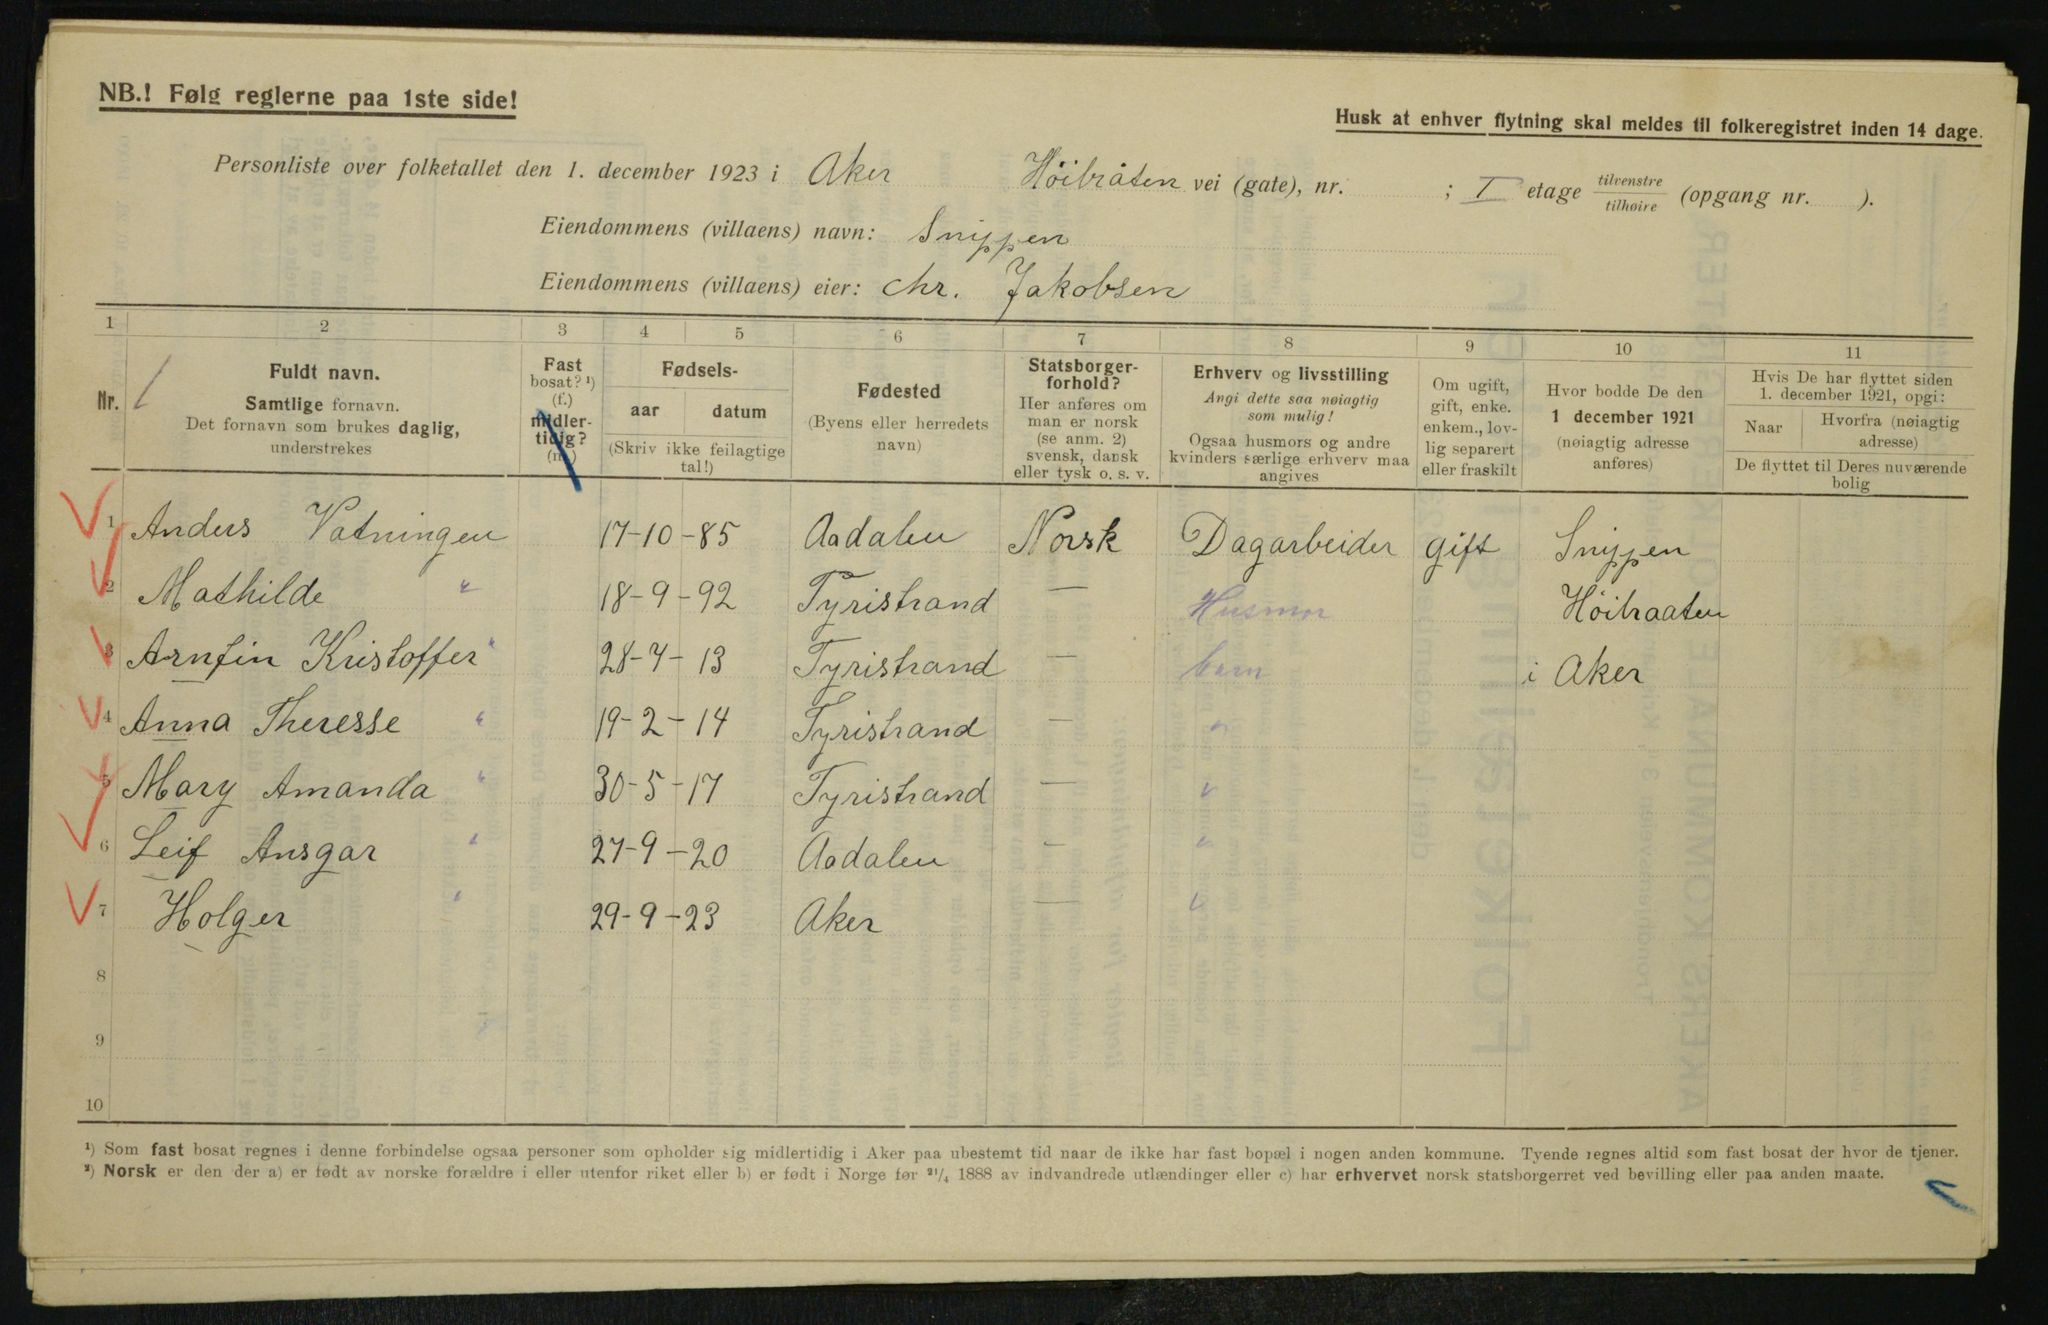 NB.! Følg reglerne paa 1ste side!
Husk at enhver flytning skal meldes til folkeregistret inden 14 dage.
Personliste over folketallet den 1. december 1923 i Aker Höibråten vei (gate), nr. ; I etage tilvenstre/tilhøire (opgang nr. ).
Eiendommens (villaens) navn: Snippen
Eiendommens (villaens) eier: Chr. Jakobsen
1 2 3 4 5 6 7 8 9 10 11
Nr.
Fuldt navn.
Samtlige fornavn.
Det fornavn som brukes daglig,
understrekes
Fast
bosat? ¹)
(f.)
midler-
tidig?
(m.)
Fødsels-
aar datum
(Skriv ikke feilagtige
tal!)
Fødested
(Byens eller herredets
navn)
Statsborger-
forhold?
Her anføres om
man er norsk
(se anm. 2)
svensk, dansk
eller tysk o. s. v.
Erhverv og livsstilling
Angi dette saa nøiagtig
som mulig!
Ogsaa husmors og andre
kvinders særlige erhverv maa
angives
Om ugift,
gift, enke.
enkem., lov-
lig separert
eller fraskilt
Hvor bodde De den
1 december 1921
(nøiagtig adresse
anføres)
Hvis De har flyttet siden
1. december 1921, opgi:
Naar Hvorfra (nøiagtig
adresse)
De flyttet til Deres nuværende
bolig
1 Anders Vatningen 17-10-85 Aadalen Norsk Dagarbeider gift Snippen
2 Mathilde " 18-9-92 Tyristrand — Husmor Höibraaten
3 Arnfin Kristoffer " 28-4-13 Tyristrand — barn i Aker
4 Anna Theresse " 19-2-14 Tyristrand — "
5 Mary Amanda " 30-5-17 Tyristrand — "
6 Leif Ansgar " 27-9-20 Aadalen — "
7 Holger " 29-9-23 Aker — "
8
9
10
¹) Som fast bosat regnes i denne forbindelse ogsaa personer som opholder sig midlertidig i Aker paa ubestemt tid naar de ikke har fast bopæl i nogen anden kommune. Tyende regnes altid som fast bosat der hvor de tjener.
²) Norsk er den der a) er født av norske forældre i eller utenfor riket eller b) er født i Norge før ²¹/₄ 1888 av indvandrede utlændinger eller c) har erhvervet norsk statsborgerret ved bevilling eller paa anden maate.